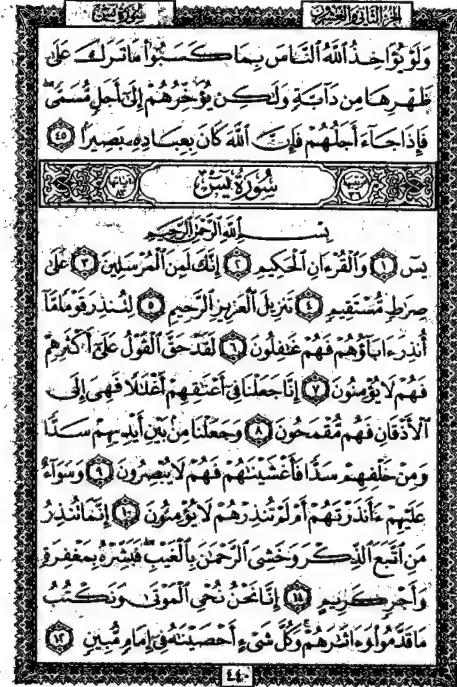 الجزء الثاني والعشرون سورة يس
وَلَوْ يُؤَاخِذُ ٱللَّهُ ٱلنَّاسَ بِمَا كَسَبُوا۟ مَا تَرَكَ عَلَىٰ
ظَهْرِهَا مِن دَآبَّةٍ وَلَٰكِن يُؤَخِّرُهُمْ إِلَىٰٓ أَجَلٍ مُّسَمًّى ۖ
فَإِذَا جَآءَ أَجَلُهُمْ فَإِنَّ ٱللَّهَ كَانَ بِعِبَادِهِۦ بَصِيرًۢا ٤٥
ترتيبها ٣٦ سُورَةُ يسٓ آياتها ٨٣
بِسْمِ ٱللَّهِ ٱلرَّحْمَٰنِ ٱلرَّحِيمِ
يسٓ ١ وَٱلْقُرْءَانِ ٱلْحَكِيمِ ٢ إِنَّكَ لَمِنَ ٱلْمُرْسَلِينَ ٣ عَلَىٰ
صِرَٰطٍ مُّسْتَقِيمٍ ٤ تَنزِيلَ ٱلْعَزِيزِ ٱلرَّحِيمِ ٥ لِتُنذِرَ قَوْمًا مَّآ
أُنذِرَ ءَابَآؤُهُمْ فَهُمْ غَٰفِلُونَ ٦ لَقَدْ حَقَّ ٱلْقَوْلُ عَلَىٰٓ أَكْثَرِهِمْ
فَهُمْ لَا يُؤْمِنُونَ ٧ إِنَّا جَعَلْنَا فِىٓ أَعْنَٰقِهِمْ أَغْلَٰلًا فَهِىَ إِلَى
ٱلْأَذْقَانِ فَهُم مُّقْمَحُونَ ٨ وَجَعَلْنَا مِنۢ بَيْنِ أَيْدِيهِمْ سَدًّا
وَمِنْ خَلْفِهِمْ سَدًّا فَأَغْشَيْنَٰهُمْ فَهُمْ لَا يُبْصِرُونَ ٩ وَسَوَآءٌ
عَلَيْهِمْ ءَأَنذَرْتَهُمْ أَمْ لَمْ تُنذِرْهُمْ لَا يُؤْمِنُونَ ١٠ إِنَّمَا تُنذِرُ
مَنِ ٱتَّبَعَ ٱلذِّكْرَ وَخَشِىَ ٱلرَّحْمَٰنَ بِٱلْغَيْبِ ۖ فَبَشِّرْهُ بِمَغْفِرَةٍ
وَأَجْرٍ كَرِيمٍ ١١ إِنَّا نَحْنُ نُحْىِ ٱلْمَوْتَىٰ وَنَكْتُبُ
مَا قَدَّمُوا۟ وَءَاثَٰرَهُمْ ۚ وَكُلَّ شَىْءٍ أَحْصَيْنَٰهُ فِىٓ إِمَامٍ مُّبِينٍ ١٢
٤٤٠